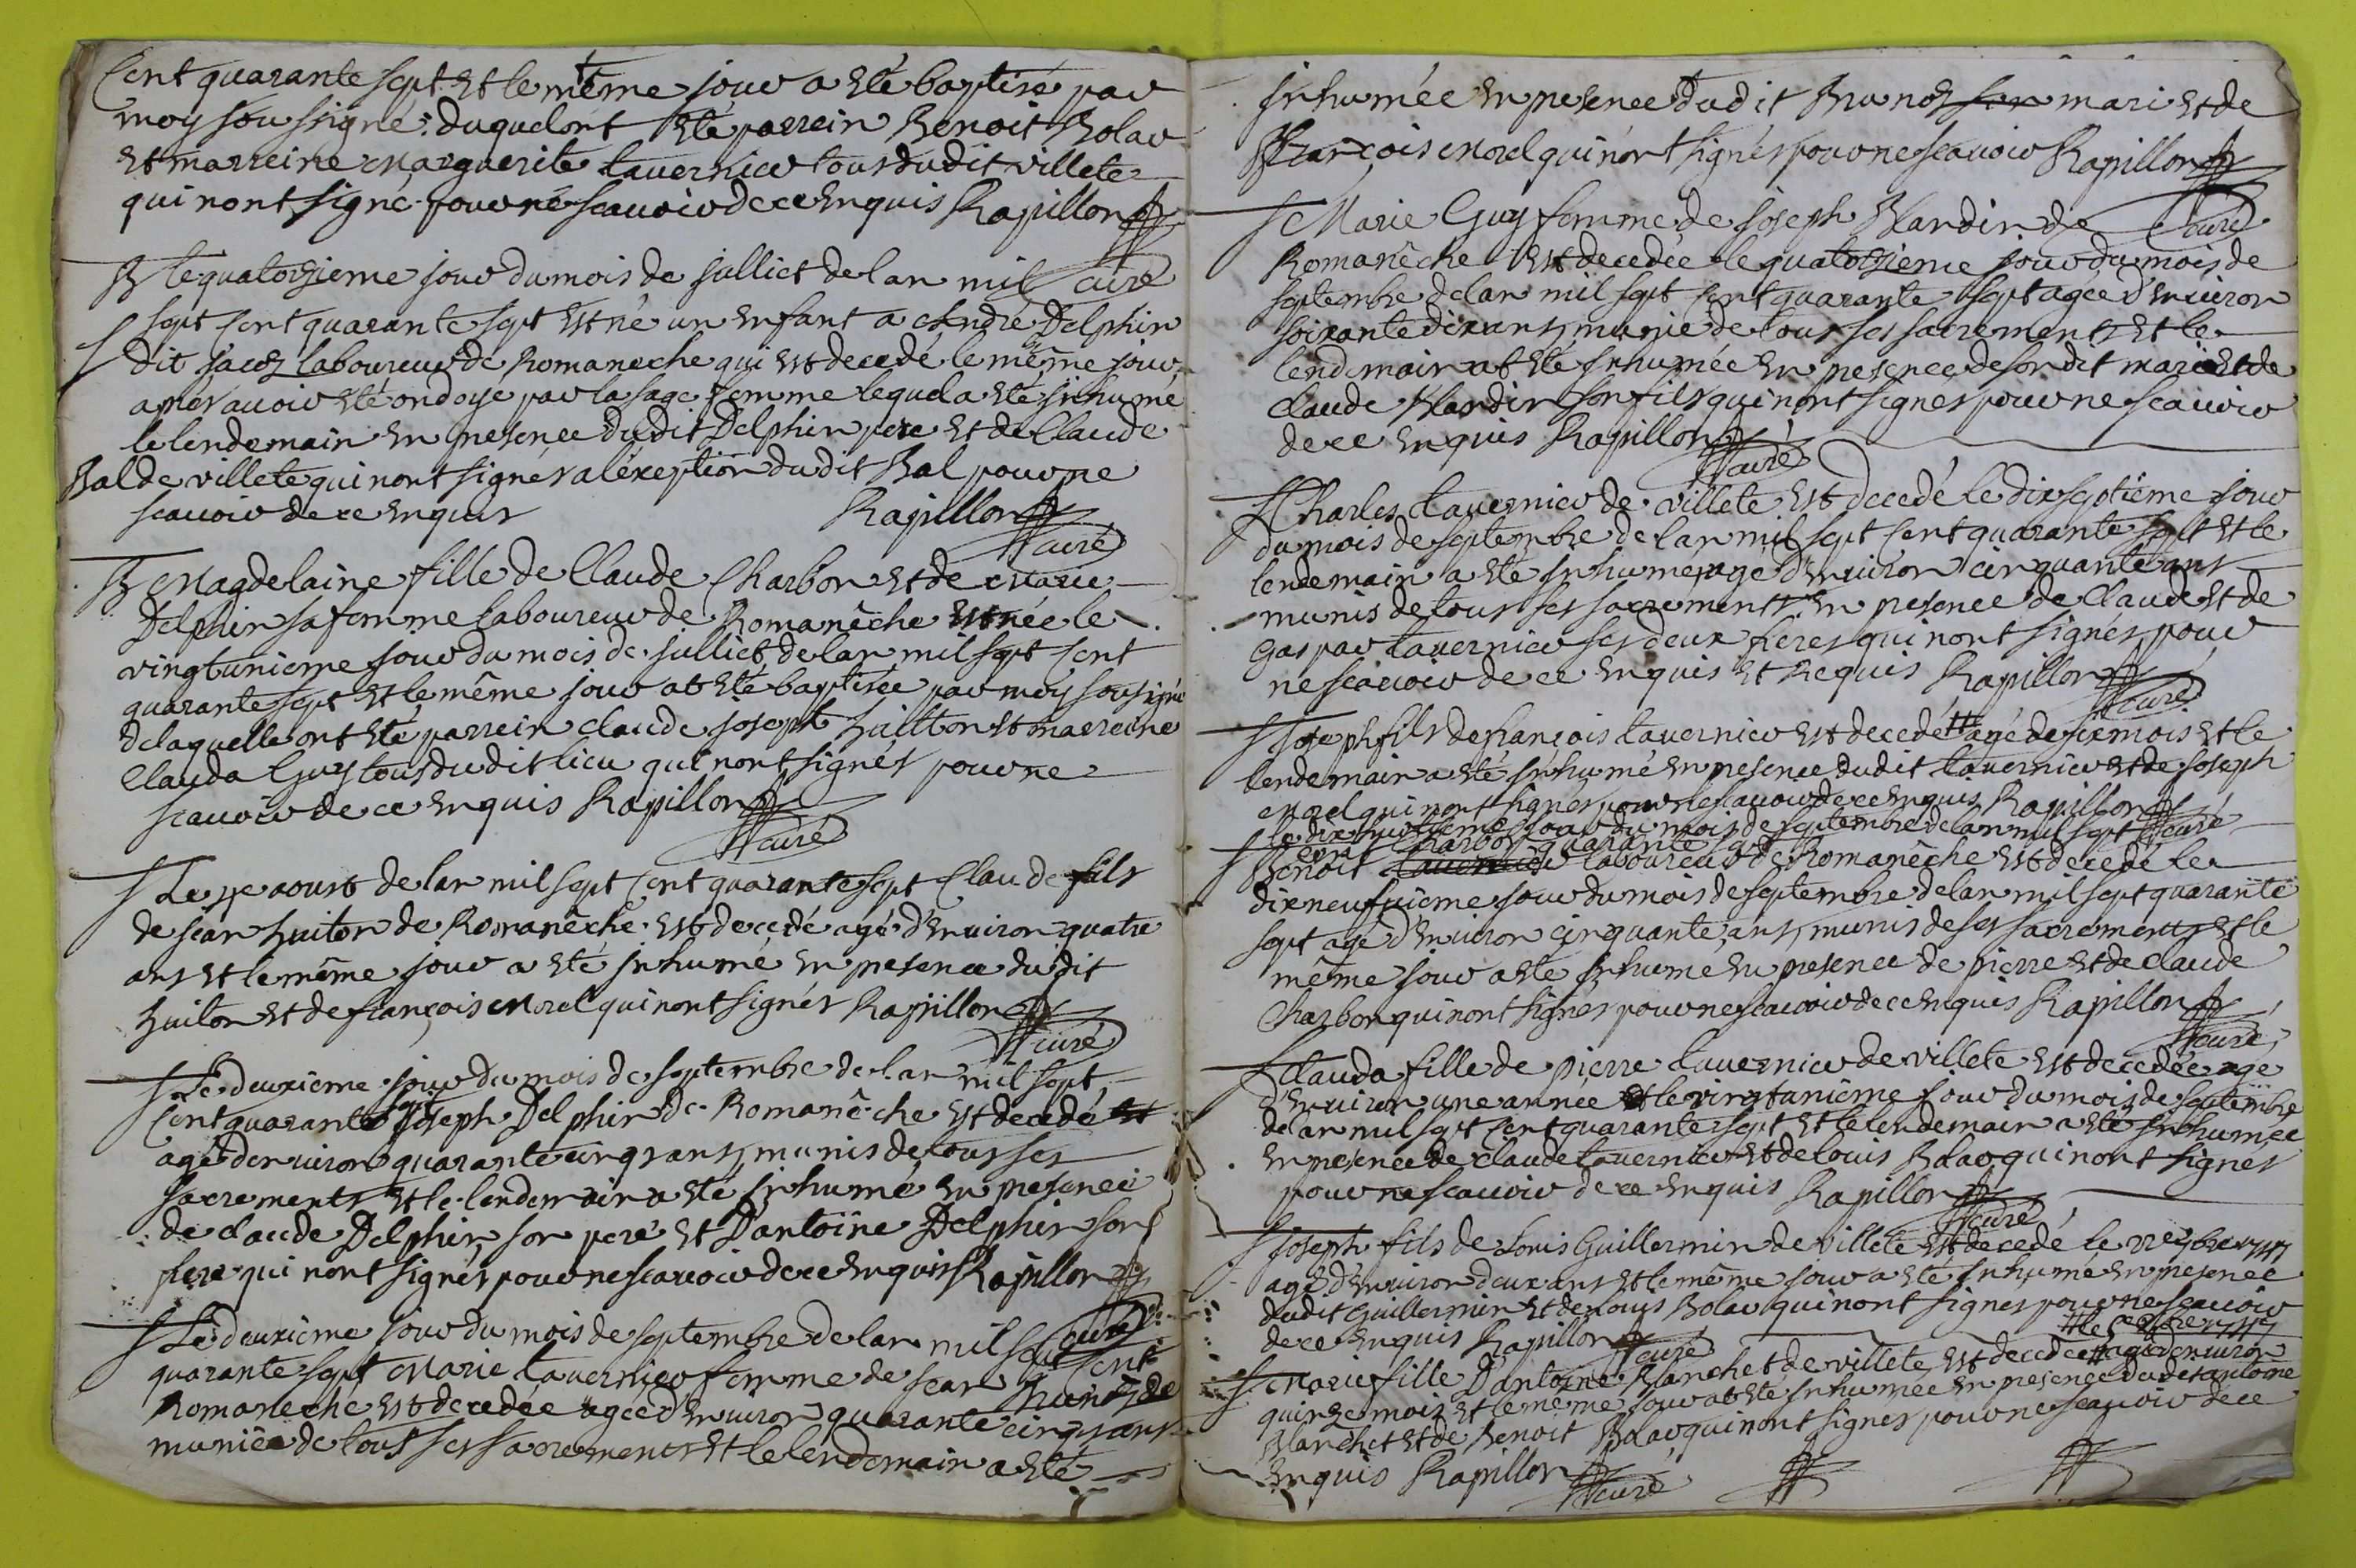 Cent quarante sept Et le même jour a Eté baptisé par
moy sousigné: duquel ont Eté parrein Benoit Bolar
Et marreine Marguerite tavernier tous dudit villete
qui nont signé pour ne scauoir de ce Enquis Rapillon
curé
B le quatorsieme jour du mois de julliet de lan mil
sept Cent quarante sept Est né un Enfant a André Delphin
S dit jacoz laboureur de Romaneche qui Est decedé le même jour
aprés auoir Eté ondoyé par la sage femme lequel a Eté jnhumé
le lendemain En presence dudit Delphin pere Et de Claude
Bal de villete qui nont signés a léxeption dudit Bal pour ne
scauoir de ce Enquis Rapillon
curé
B Magdelaine fille de Claude Charbon Et de Marie
Delphin sa femme laboureur de Romanêche Est née le
vingtunieme jour du mois de julliet de lan mil sept Cent
quarante sept Et le même jour at Eté baptisée par moy sousigné
delaquelle ont Eté parrein claude joseph huitton Et marreine
Clauda Guy tous dudit lieu qui nont signés pour ne
scauoir de ce Enquis Rapillon
curé
S Le aoust de lan mil sept Cent quarante sept Claude fils
de jean huiton de Romanêche Est decedé agé d'Enuiron quatre
ans Et le même jour a Eté jnhumé En presence dudit
huiton Et de françois Morel qui nont signés Rapillon
curé
S Le deuxieme jour du mois de septembre de lan mil sept
Cent quarante sept joseph Delphin de Romanêche Est decedé
agé denuiron quarante cinq ans munis de tous ses
sacrements Et le lendemain a Eté jnhumé En presence
de claude Delphin son pere Et D'antoine Delphin son
frere qui nont signés pour ne scauoir de ce Enquis Rapillon
curé
S Le deuxieme jour du mois de septembre de lan mil sept Cent
quarante sept Marie tavernier femme de jean Brunoz de
Romaneche Est decedée agée d'Enuiron quarante cinq ans
muniée de tous ses sacrements Et le lendemain a Eté
jnhumée En presence dudit Brunoz son mari Et de
François Morel qui nont signés pour ne scauoir Rapillon
curé
S Marie Guy femme de joseph Nardin de
Romanêche Est decedée le quatorsieme jour du mois de
septembre de lan mil sept Cent quarante sept agée d'Enuiron
soixante dix ans munie de tous ses sacrements Et le
lendemain at Eté jnhumée En presence de son dit mari Et de
Claude Nardin son fils qui nont signés pour ne scauoir
de ce Enquis Rapillon
curé
S Charles tavernier de villete Est decedé le dix septieme jour
du mois de septembre de lan mil sept Cent quarante sept Et le
lendemain a Eté jnhumé agé d'Enuiron cinquante ans
munis de tous ses sacrements En presence de Claude Et de
Gaspar tavernier ses deux freres qui nont signés pour
ne scauoir de ce Enquis Et Requis Rapillon
curé
S joseph fils de françois tavernier Est decedé agé de six mois Et le
lendemain a Eté jnhumé En presence dudit tavernier Et de joseph
Morel qui nont signés pour ne scauoir de ce Enquis Rapillon
curé
le dix huitieme jour du mois de septembre de lan mil sept
cent quarante sept
S Benoit Charbon laboureur de Romanêche Est decedé le
dixneufuieme jour du mois de septembre de lan mil sept quarante
sept agé d'Enuiron cinquante ans munis de ses sacrements Et le
même jour a Eté jnhumé En presence de pierre Et de claude
Charbon qui nont signés pour ne scauoir de ce Enquis Rapillon
curé
S Clauda fille de pierre tavernier de villete Est decedée agé
d'Enuiron une année le vingtunieme jour du mois de septembre
de lan mil sept Cent quarante sept Et le lendemain a Eté jnhumée
En presence de claude tavernier Et de louis Bolar qui nont signés
pour ne scauoir de ce Enquis Rapillon
curé
S joseph fils de Louis Guillermin de villete Est decedé le 22e 7bre 1747
agé d'Enuiron deux ans Et le même jour a Eté jnhumé En presence
dudit Guillermin Et de louis Bolar qui nont signés pour ne scauoir
de ce Enquis Rapillon
curé
S Marie fille D'antoine Blanchet de villete Est decedée agé denuiron
quinze mois Et le même jour at Eté jnhumée En presence dudit antoine
Blanchet Et de Benoit Bolar qui nont signés pour ne scauoir de ce
Enquis Rapillon
curé